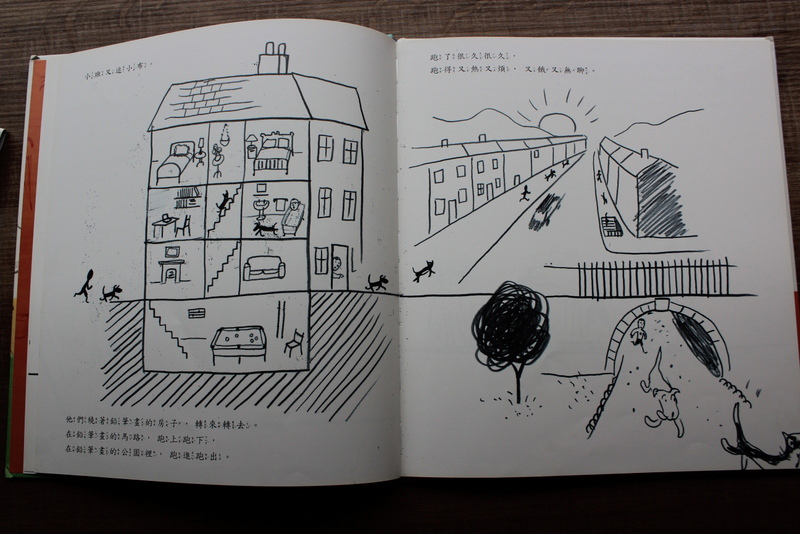 小班又追小布，
他們繞著鉛筆畫的房子，轉來轉去。
在鉛筆畫的馬路，跑上跑下，
在鉛筆畫的公園裡，跑進跑出。
跑了很久很久，
跑得又熱又煩，又餓又無聊。